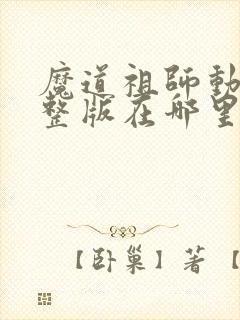 魔道祖師動
整版在哪里
【卧巢】著【